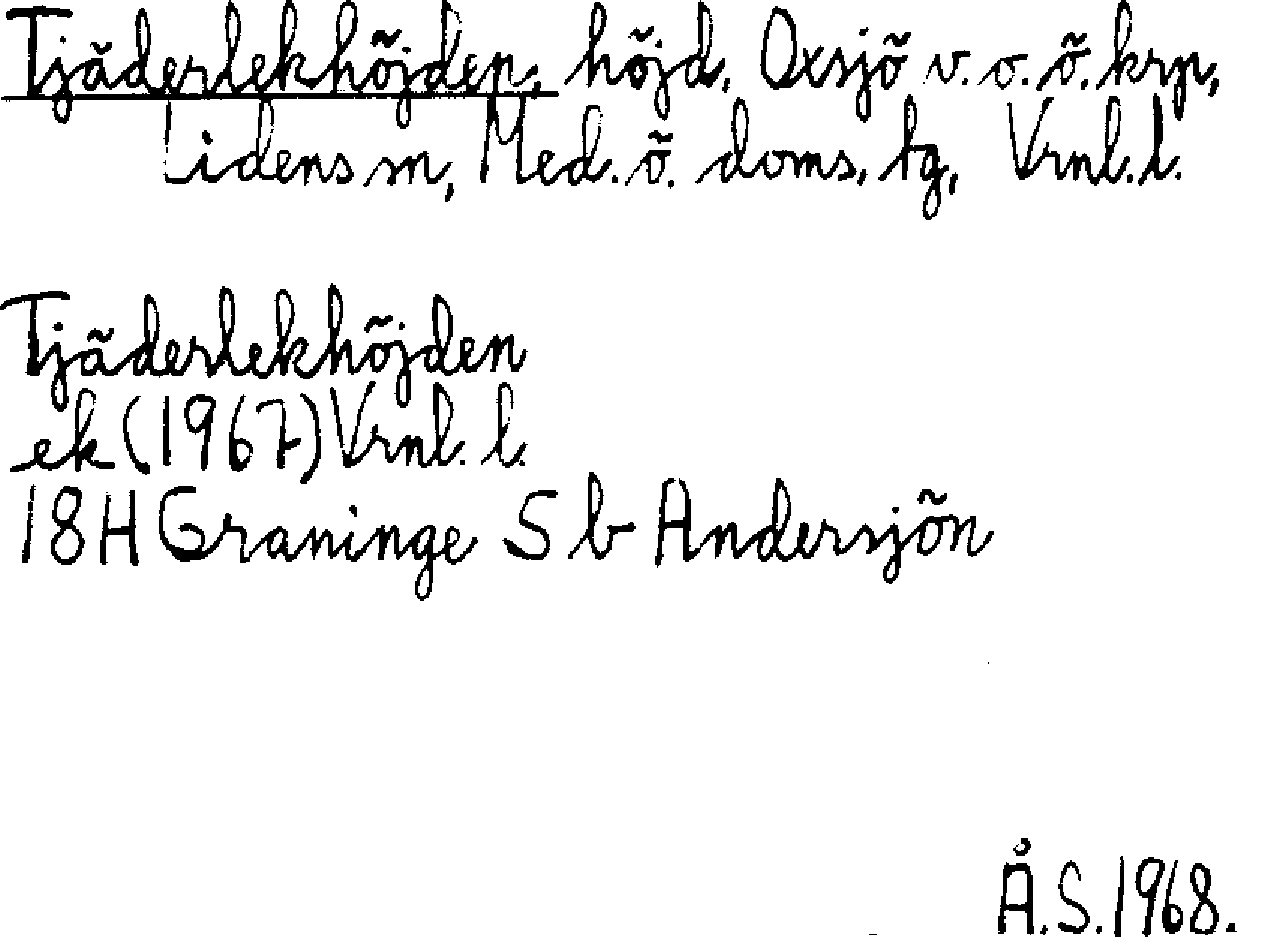 Tjäderlekhöjden, höjd, Oxsjö v. o. ö. krp,
Lidens sn, Med. ö. doms. tg, Vrnl. l.
Tjäderlekhöjden
ek (1967) Vrnl. l.
18H Graninge S b Andersjön
Å.S. 1968.